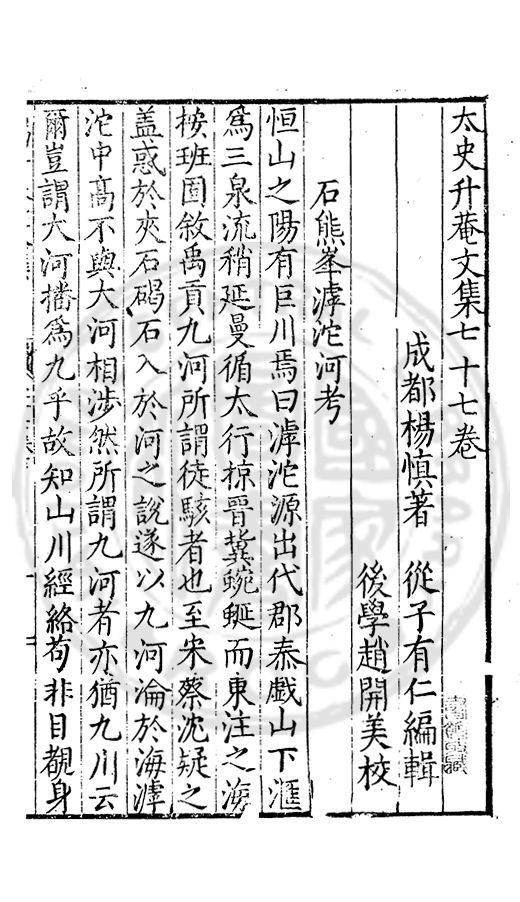 太史升菴文集七十七卷
成都楊慎著　從子有仁編輯
後學趙開美校
石熊峯滹沱河考
恒山之陽有巨川焉曰滹沱源出代郡泰戲山下滙
為三泉流稍延曼循太行掠晉冀蜿蜒而東注之海
按班固敘禹貢九河所謂徒駭者也至宋蔡沈疑之
盖惑於夾石碣石入於河之說遂以九河淪於海滹
沱中高不與大河相涉然所謂九河者亦猶九川云
爾豈謂大河播為九乎故知山川經絡苟非目覩身